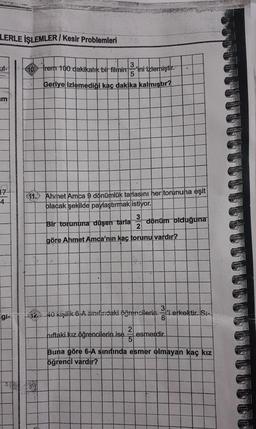 LERLE İŞLEMLER / Kesir Problemleri
10. İrem 100 dakikalık bir filmin 3/5 'ini izlemiştir.
Geriye izlemediği kaç dakika kalmıştır?
17
4
11. Ahmet Amca 9 dönümlük tarlasını her torununa eşit
olacak şekilde paylaştırmak istiyor.
Bir torununa düşen tarla 3/2 dönüm olduğuna
göre Ahmet Amca'nın kaç torunu vardır?
gi-
12. 40 kişilik 6-A sınıfındaki öğrencilerin 3/8 'i erkektir. Sı-
nıftaki kız öğrencilerin ise 2/5 esmerdir.
Buna göre 6-A sınıfında esmer olmayan kaç kız
öğrenci vardır?